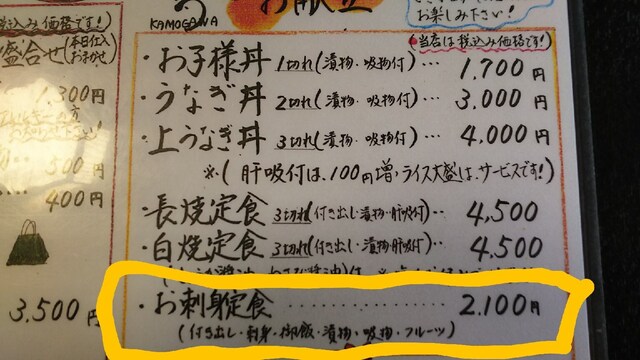 KAMOGAWA
お献立
お楽しみ下さい!
税込み価格です!
(当店は税込み価格です!)
盛合せ(本日仕入おまかせ)
1,300円
500円
400円
3,500円
・お子様丼 1切れ(漬物・吸物付)… 1,700円
・うなぎ丼 2切れ(漬物・吸物付)… 3,000円
・上うなぎ丼 3切れ(漬物・吸物付)… 4,000円
※(肝吸付は、100円増,ライス大盛は、サービスです!)
・長焼定食 3切れ(付き出し・漬物・肝吸付)… 4,500
・白焼定食 3切れ(付き出し・漬物・肝吸付)… 4,500
・お刺身定食 ………… 2.100円
(付き出し・刺身・御飯・漬物・吸物・フルーツ)